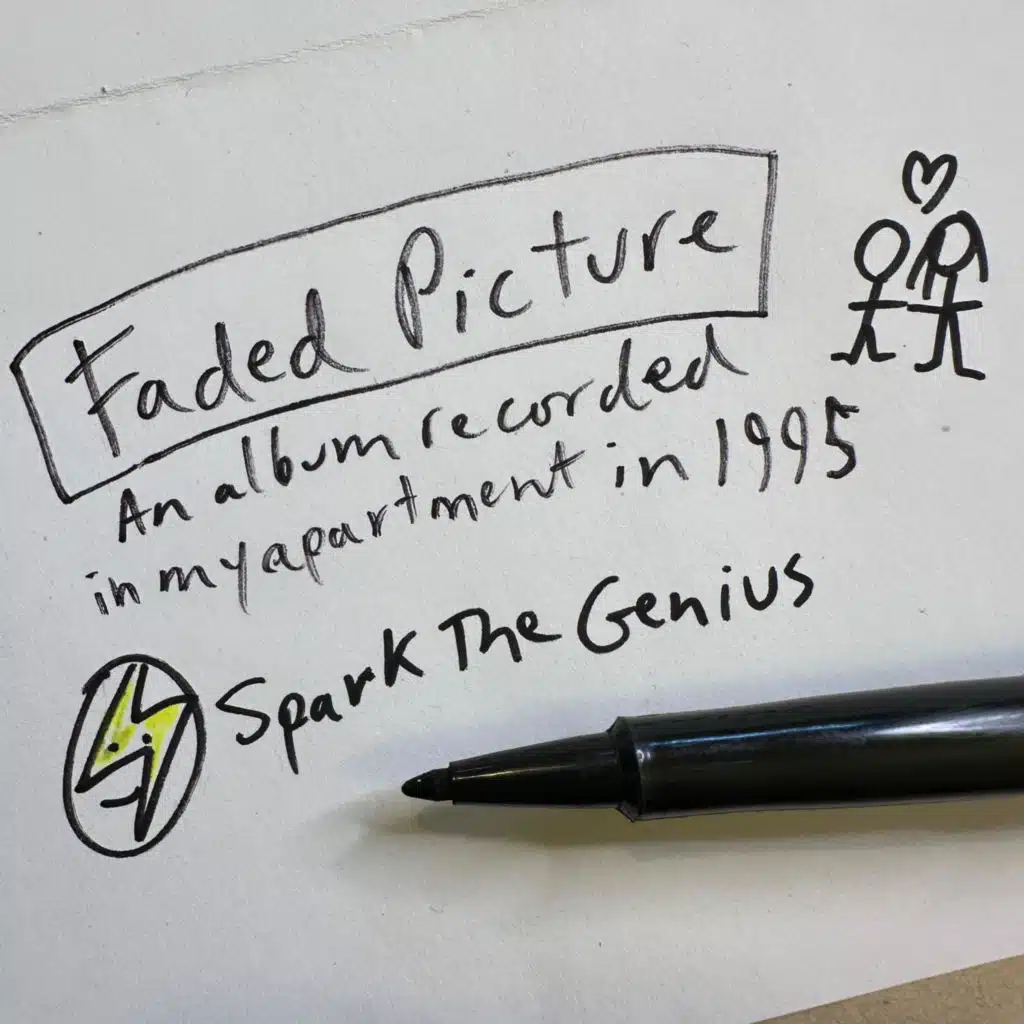 Faded Picture
An album recorded
in my apartment in 1995
Spark The Genius